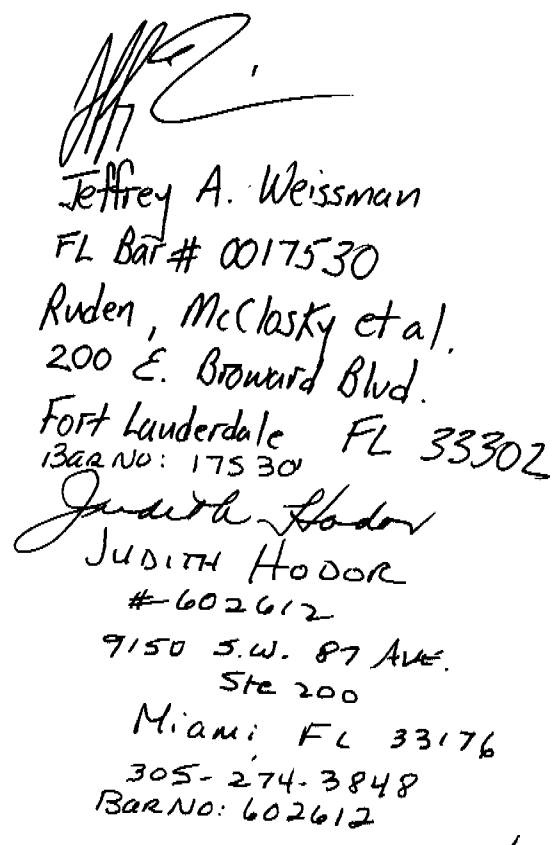 Jeffrey A. Weissman
FL Bar # 0017530
Ruden, McClosky et al.
200 E. Broward Blvd.
Fort Lauderdale FL 33302
Bar No: 17530
Judith Hodor
JUDITH HODOR
#602612
9150 S.W. 87 AVE.
Ste 200
Miami FL 33176
305-274-3848
Bar No: 602612